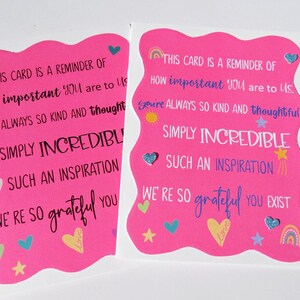 THIS CARD IS A REMINDER OF
HOW important YOU are to US
ALWAYS SO KIND AND thoughtful
SIMPLY INCREDIBLE
SUCH AN INSPIRATION
WE'RE SO grateful YOU
THIS CARD IS A REMINDER OF
HOW important YOU are to US
you're ALWAYS SO KIND AND thoughtful
SIMPLY INCREDIBLE
SUCH AN INSPIRATION
WE'RE SO grateful YOU EXIST